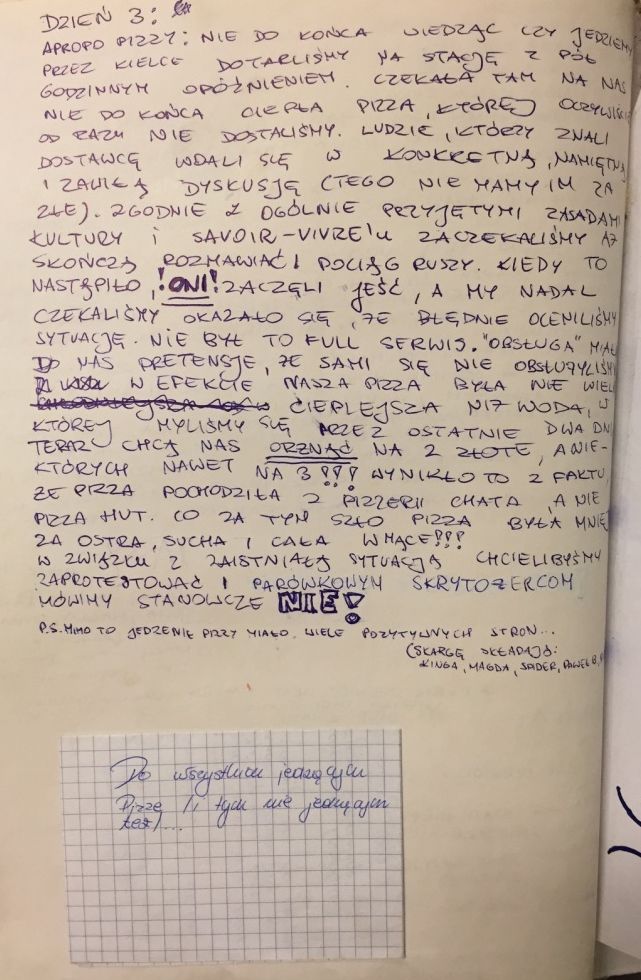 DZIEŃ 3:
APROPO PIZZY: NIE DO KOŃCA WIEDZĄC CZY JEDZIEMY
PRZEZ KIELCE DOTARLIŚMY NA STACJĘ Z PÓŁ
GODZINNYM OPÓŹNIENIEM. CZEKAŁA TAM NA NAS
NIE DO KOŃCA CIEPŁA PIZZA, KTÓREJ OCZYWIŚCIE
OD RAZU NIE DOSTALIŚMY. LUDZIE, KTÓRZY ZNALI
DOSTAWCĘ WDALI SIĘ W KONKRETNĄ, NAMIĘTNĄ
I ZAWIŁĄ DYSKUSJĘ (TEGO NIE MAMY IM ZA
ZŁE). ZGODNIE Z OGÓLNIE PRZYJĘTYMI ZASADAMI
KULTURY I SAVOIR-VIVRE'U ZACZEKALIŚMY AŻ
SKOŃCZĄ ROZMAWIAĆ I POCIĄG RUSZY. KIEDY TO
NASTĄPIŁO, !ONI! ZACZĘLI JEŚĆ, A MY NADAL
CZEKALIŚMY OKAZAŁO SIĘ, ŻE BŁĘDNIE OCENILIŚMY
SYTUACJĘ. NIE BYŁ TO FULL SERWIS. "OBSŁUGA" MIAŁA
DO NAS PRETENSJE, ŻE SAMI SIĘ NIE OBSŁUŻYLIŚMY
W EFEKCIE NASZA PIZZA BYŁA NIE WIELE
CIEPLEJSZA NIŻ WODA, W
KTÓREJ MYLIŚMY SIĘ PRZEZ OSTATNIE DWA DNI
TERAZ CHCĄ NAS ORZNĄĆ NA 2 ZŁOTE, A NIE-
KTÓRYCH NAWET NA 3!!! WYNIKŁO TO Z FAKTU,
ŻE PIZZA POCHODZIŁA Z PIZZERII CHATA, A NIE
PIZZA HUT. CO ZA TYM SZŁO PIZZA BYŁA MNIEJ
ZA OSTRA, SUCHA I CAŁA W MĄCE!!!
W ZWIĄZKU Z ZAISTNIAŁĄ SYTUACJĄ CHCIELIBYŚMY
ZAPROTESTOWAĆ I PARÓWKOWYM SKRYTOŻERCOM
MÓWIMY STANOWCZE NIE!
P.S. MIMO TO JEDZENIE PIZZY MIAŁO WIELE POZYTYWNYCH STRON...
(SKARGĘ SKŁADAJĄ:
KINGA, MAGDA, SPIDER, PAWEŁ B,
Do wszystkich jedzących
Pizzę (i tych nie jedzących
też)...